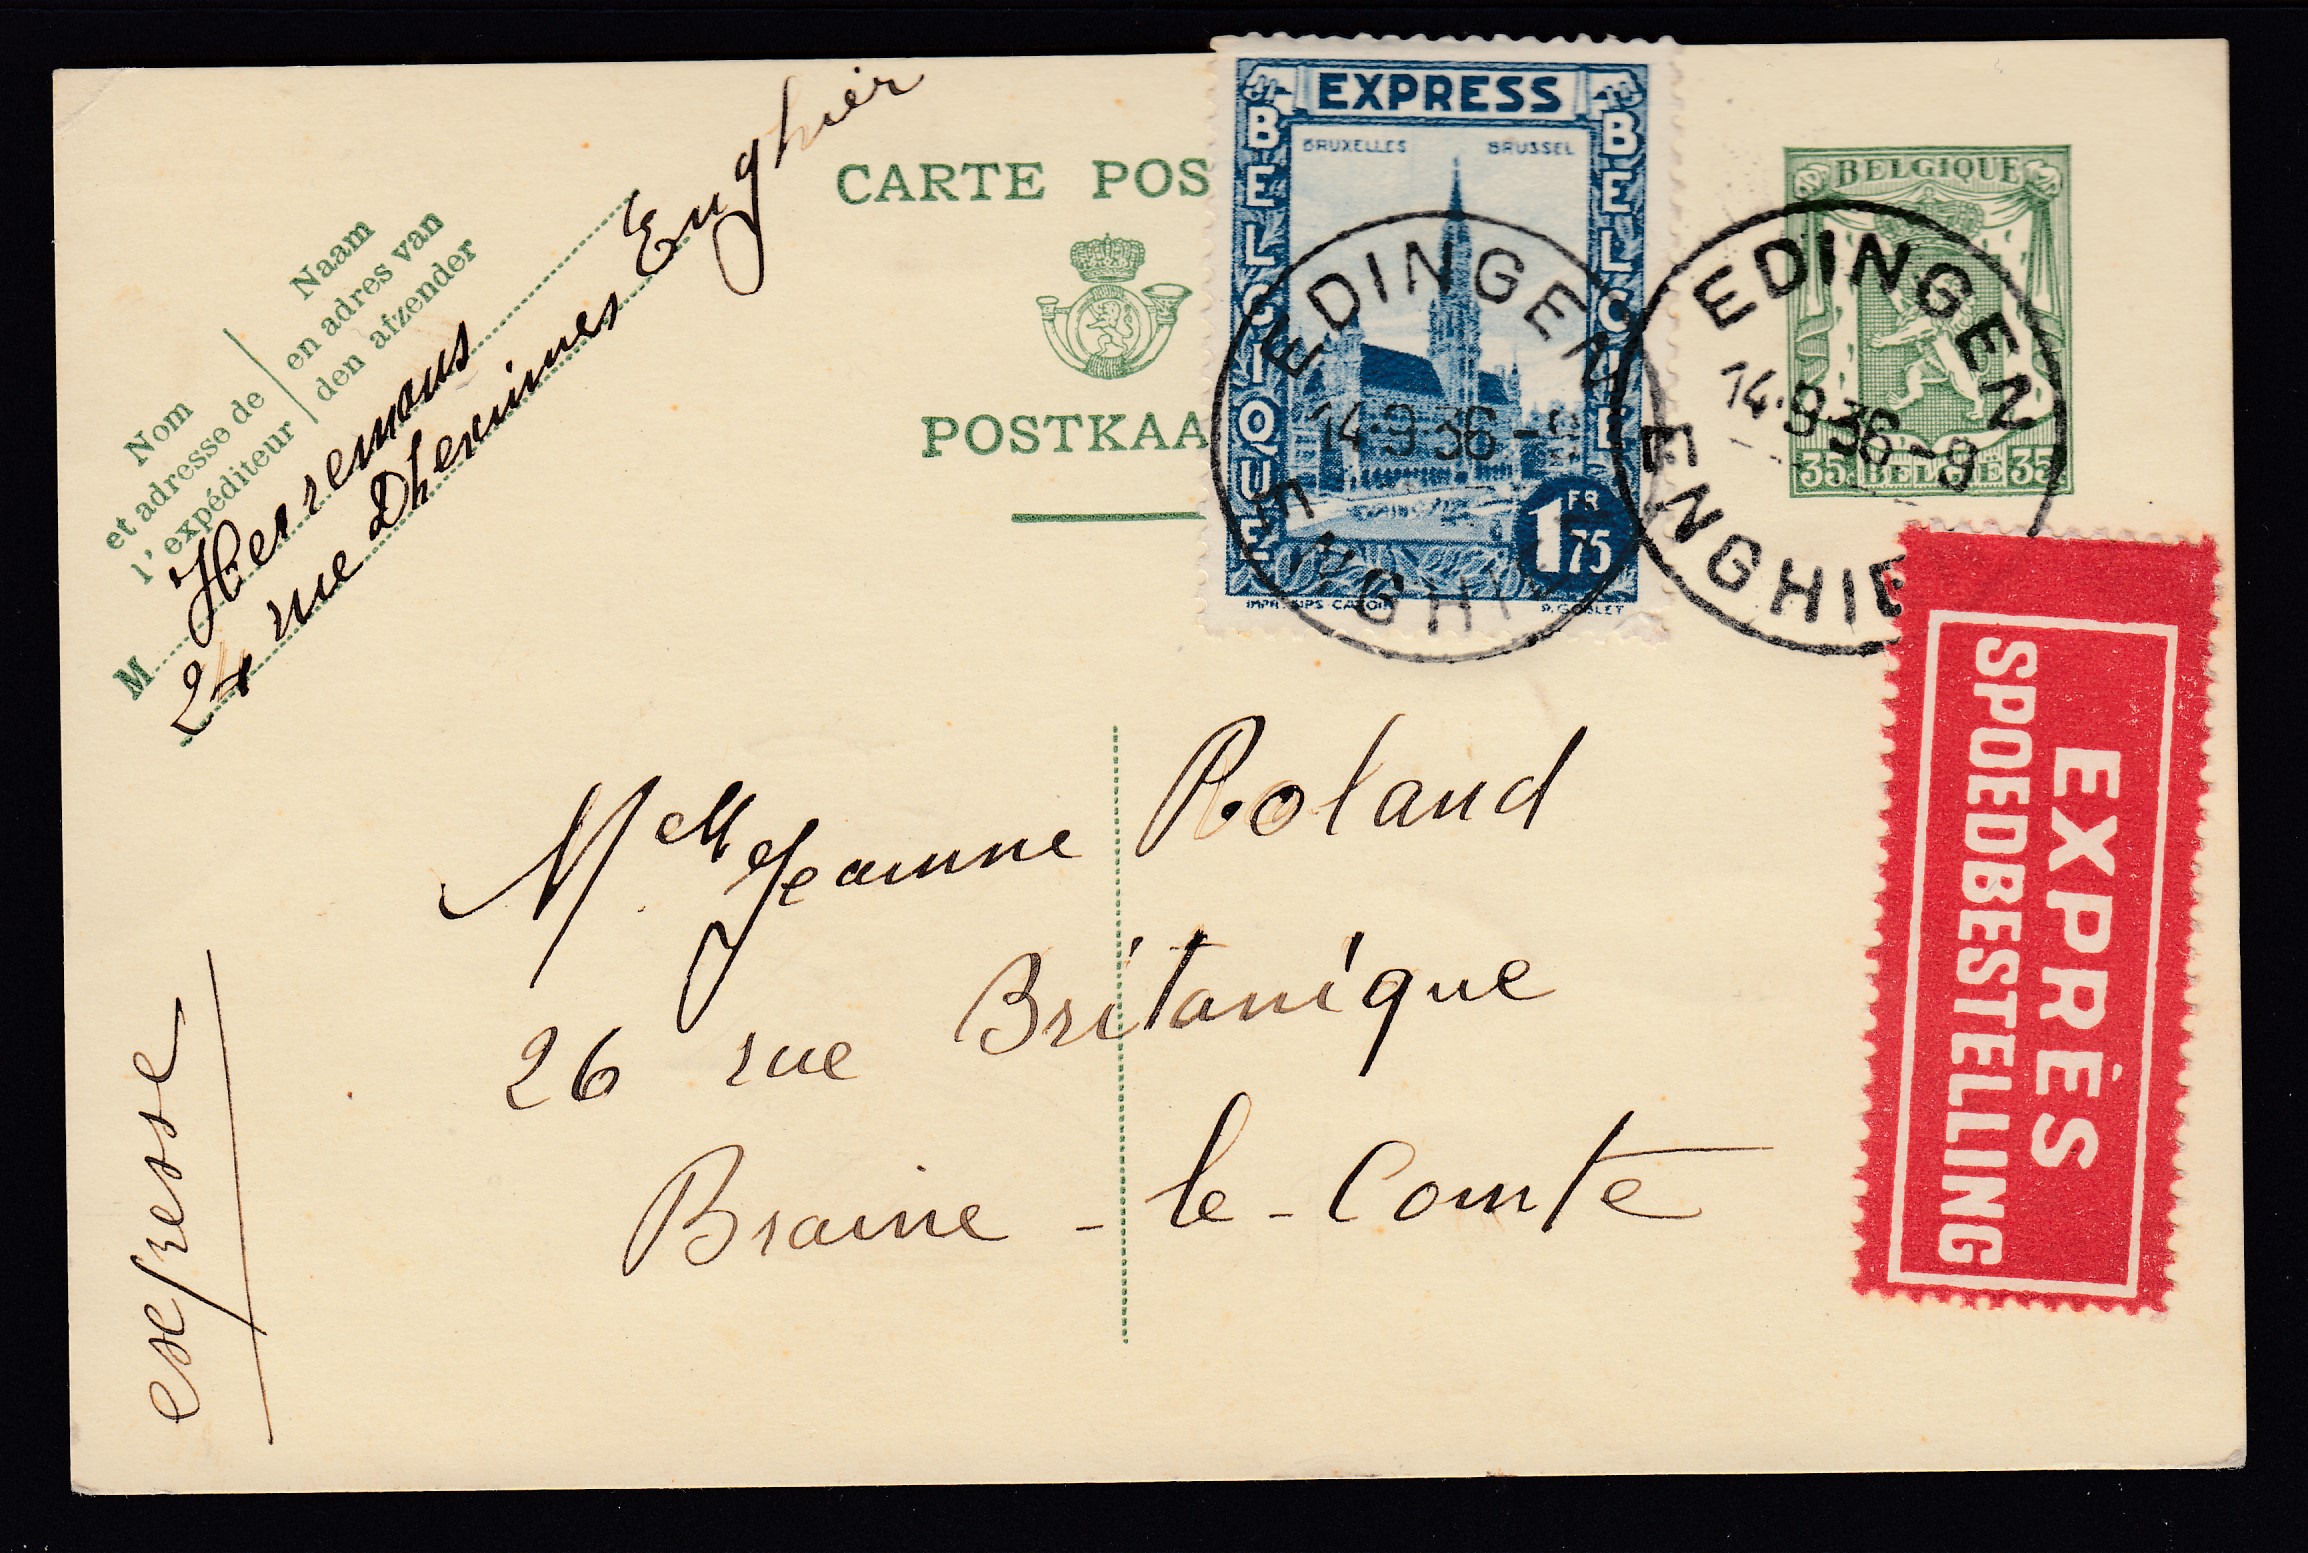 Naam
en adres van
den afzender
Nom
et adresse de
l'expéditeur
M Herremans
24 rue Dhennines Enghien
CARTE POS
POSTKAA
EXPRESS
BRUXELLES BRUSSEL
BELGIQUE
BELGIE
1 FR 75
R. GOBLET
EDINGEN
14·9·36-9
ENGHIE
BELGIQUE
35c BELGIË 35c
EDINGEN
14·9·36-9
ENGHIE
EXPRÈS
SPOEDBESTELLING
Melle Jeanne Roland
26 rue Britanique
Braine-le-Comte
expresse